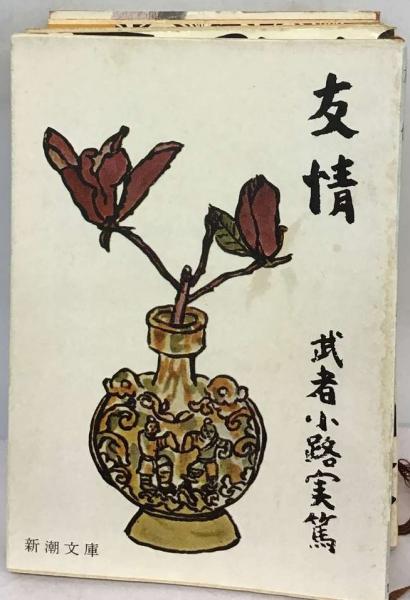 友情
武者小路実篤
新潮文庫